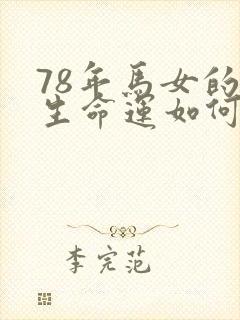 78年馬女的
生命運如何
李完范